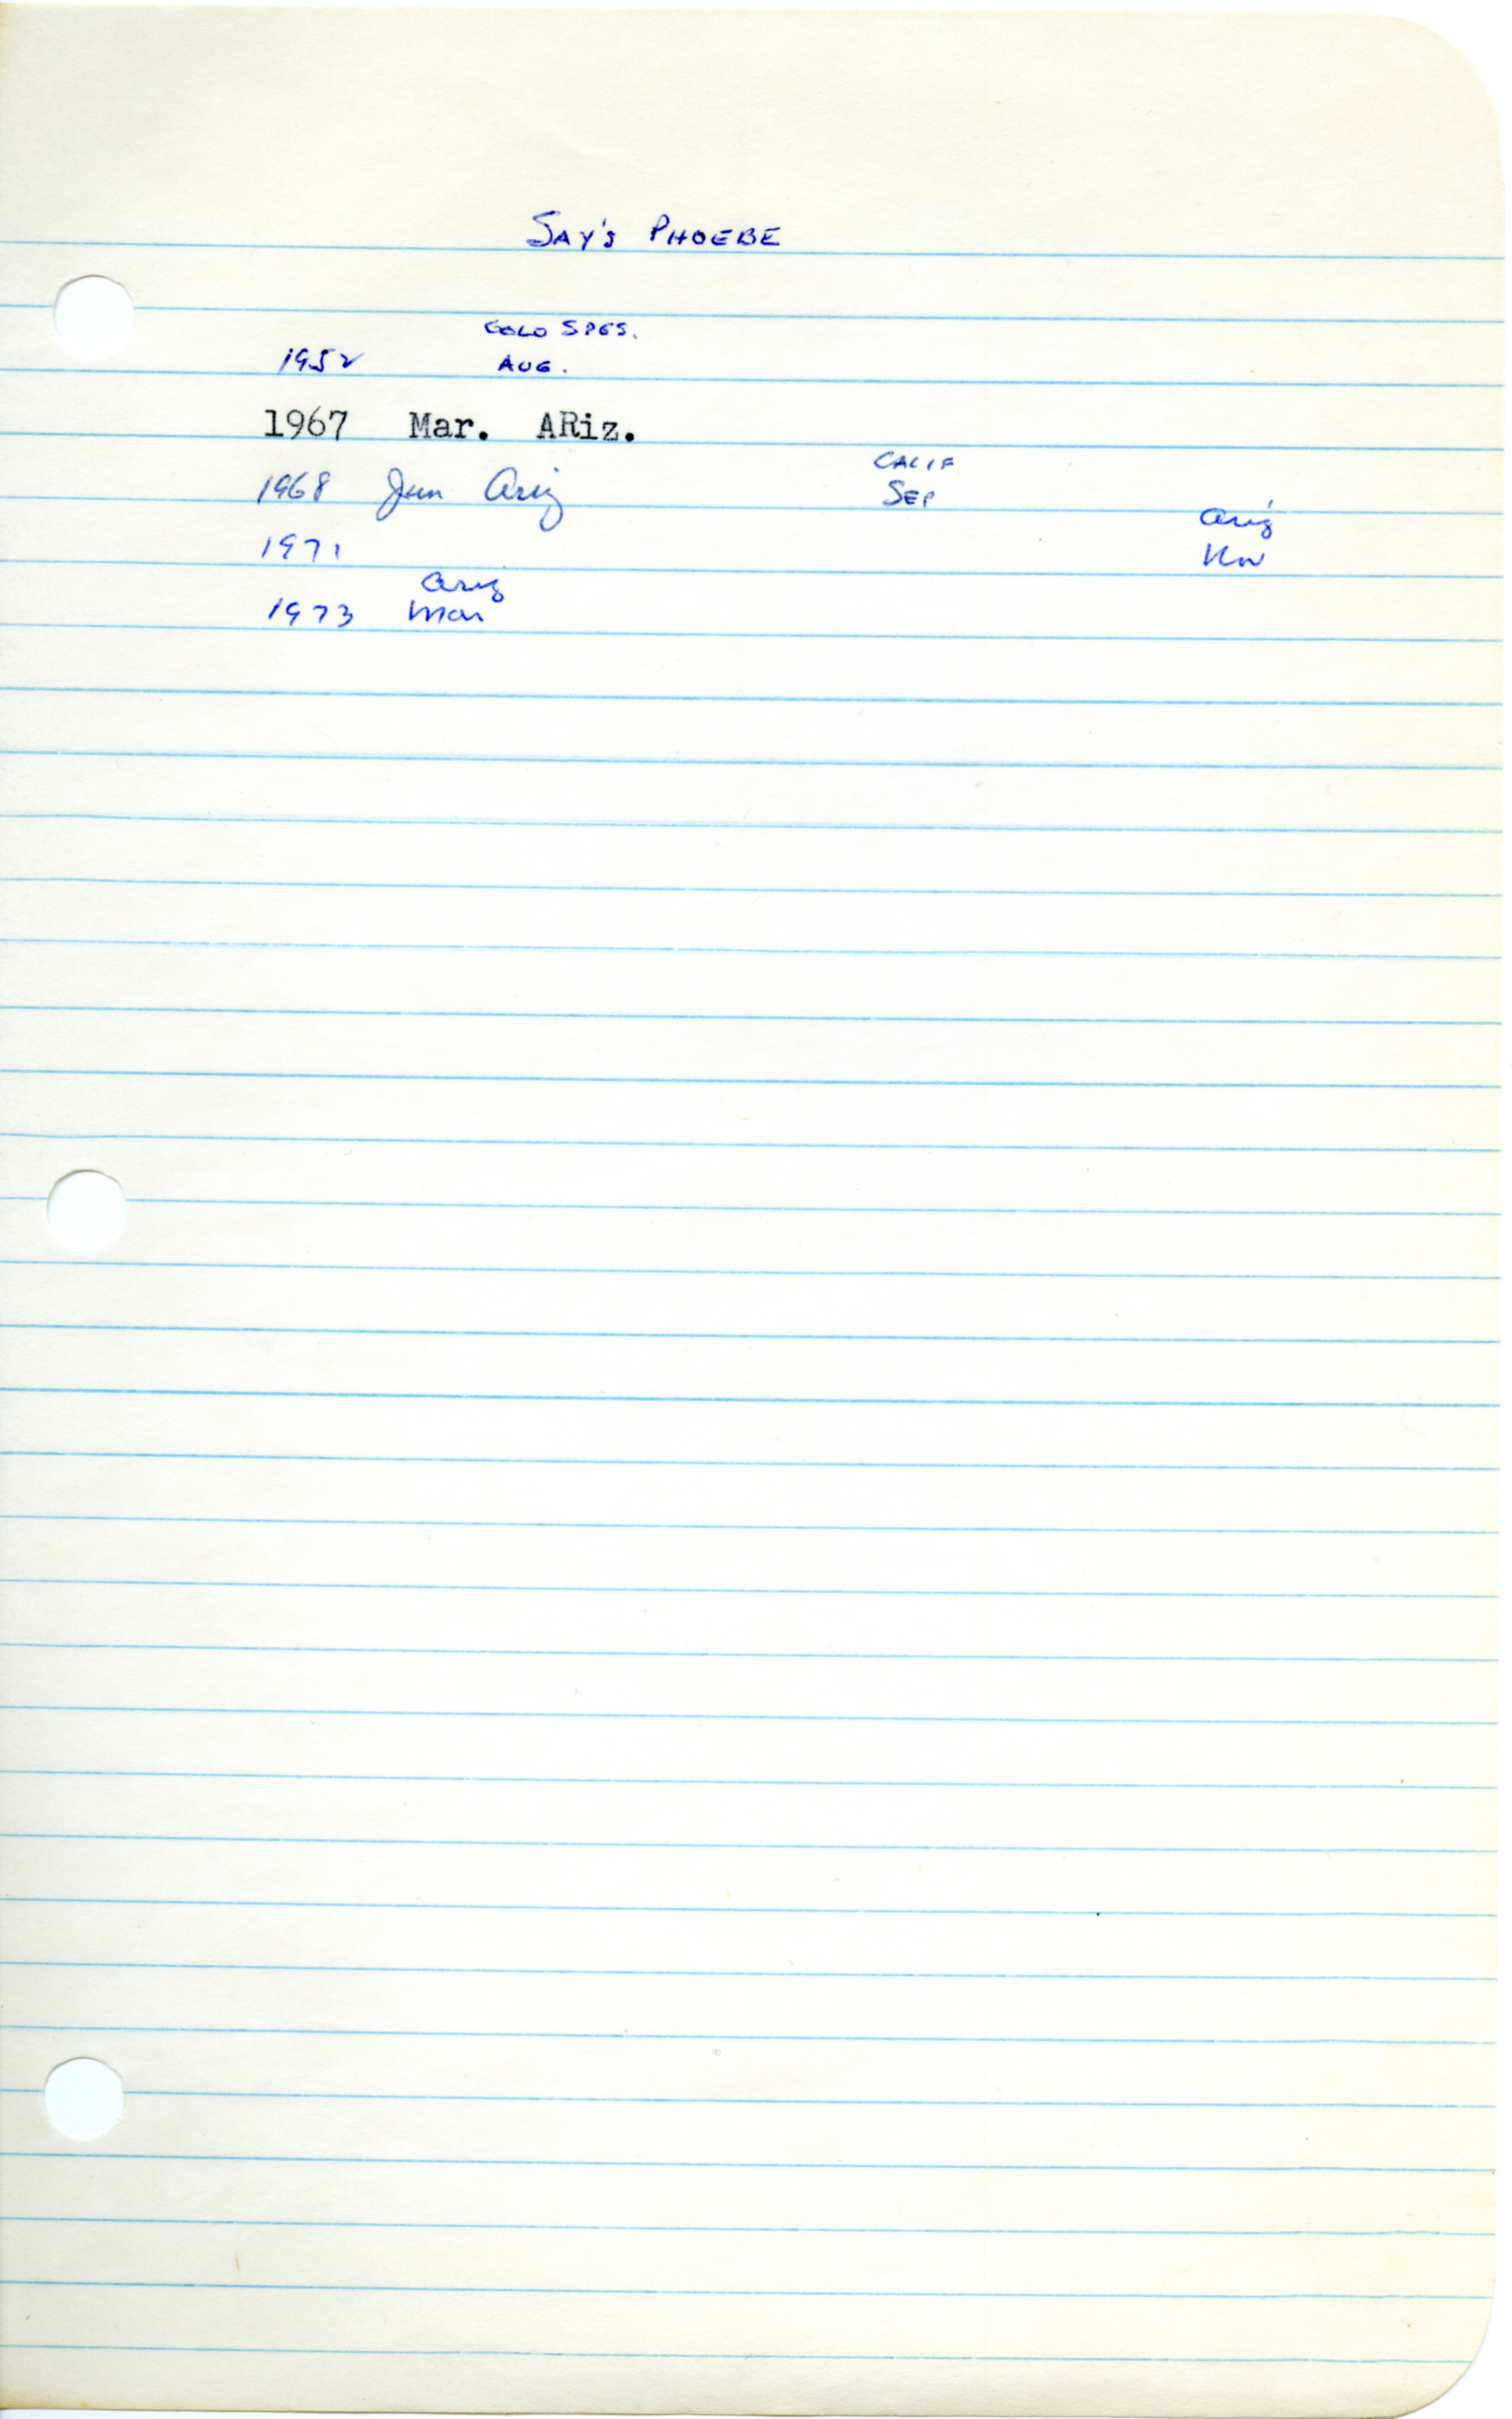 SAY'S PHOEBE
COLO SPGS.
1952 AUG.
1967 Mar. ARiz.
CALIF
1968 Jan Ariz SEP
Ariz
1971 Nov
Ariz
1973 Mar